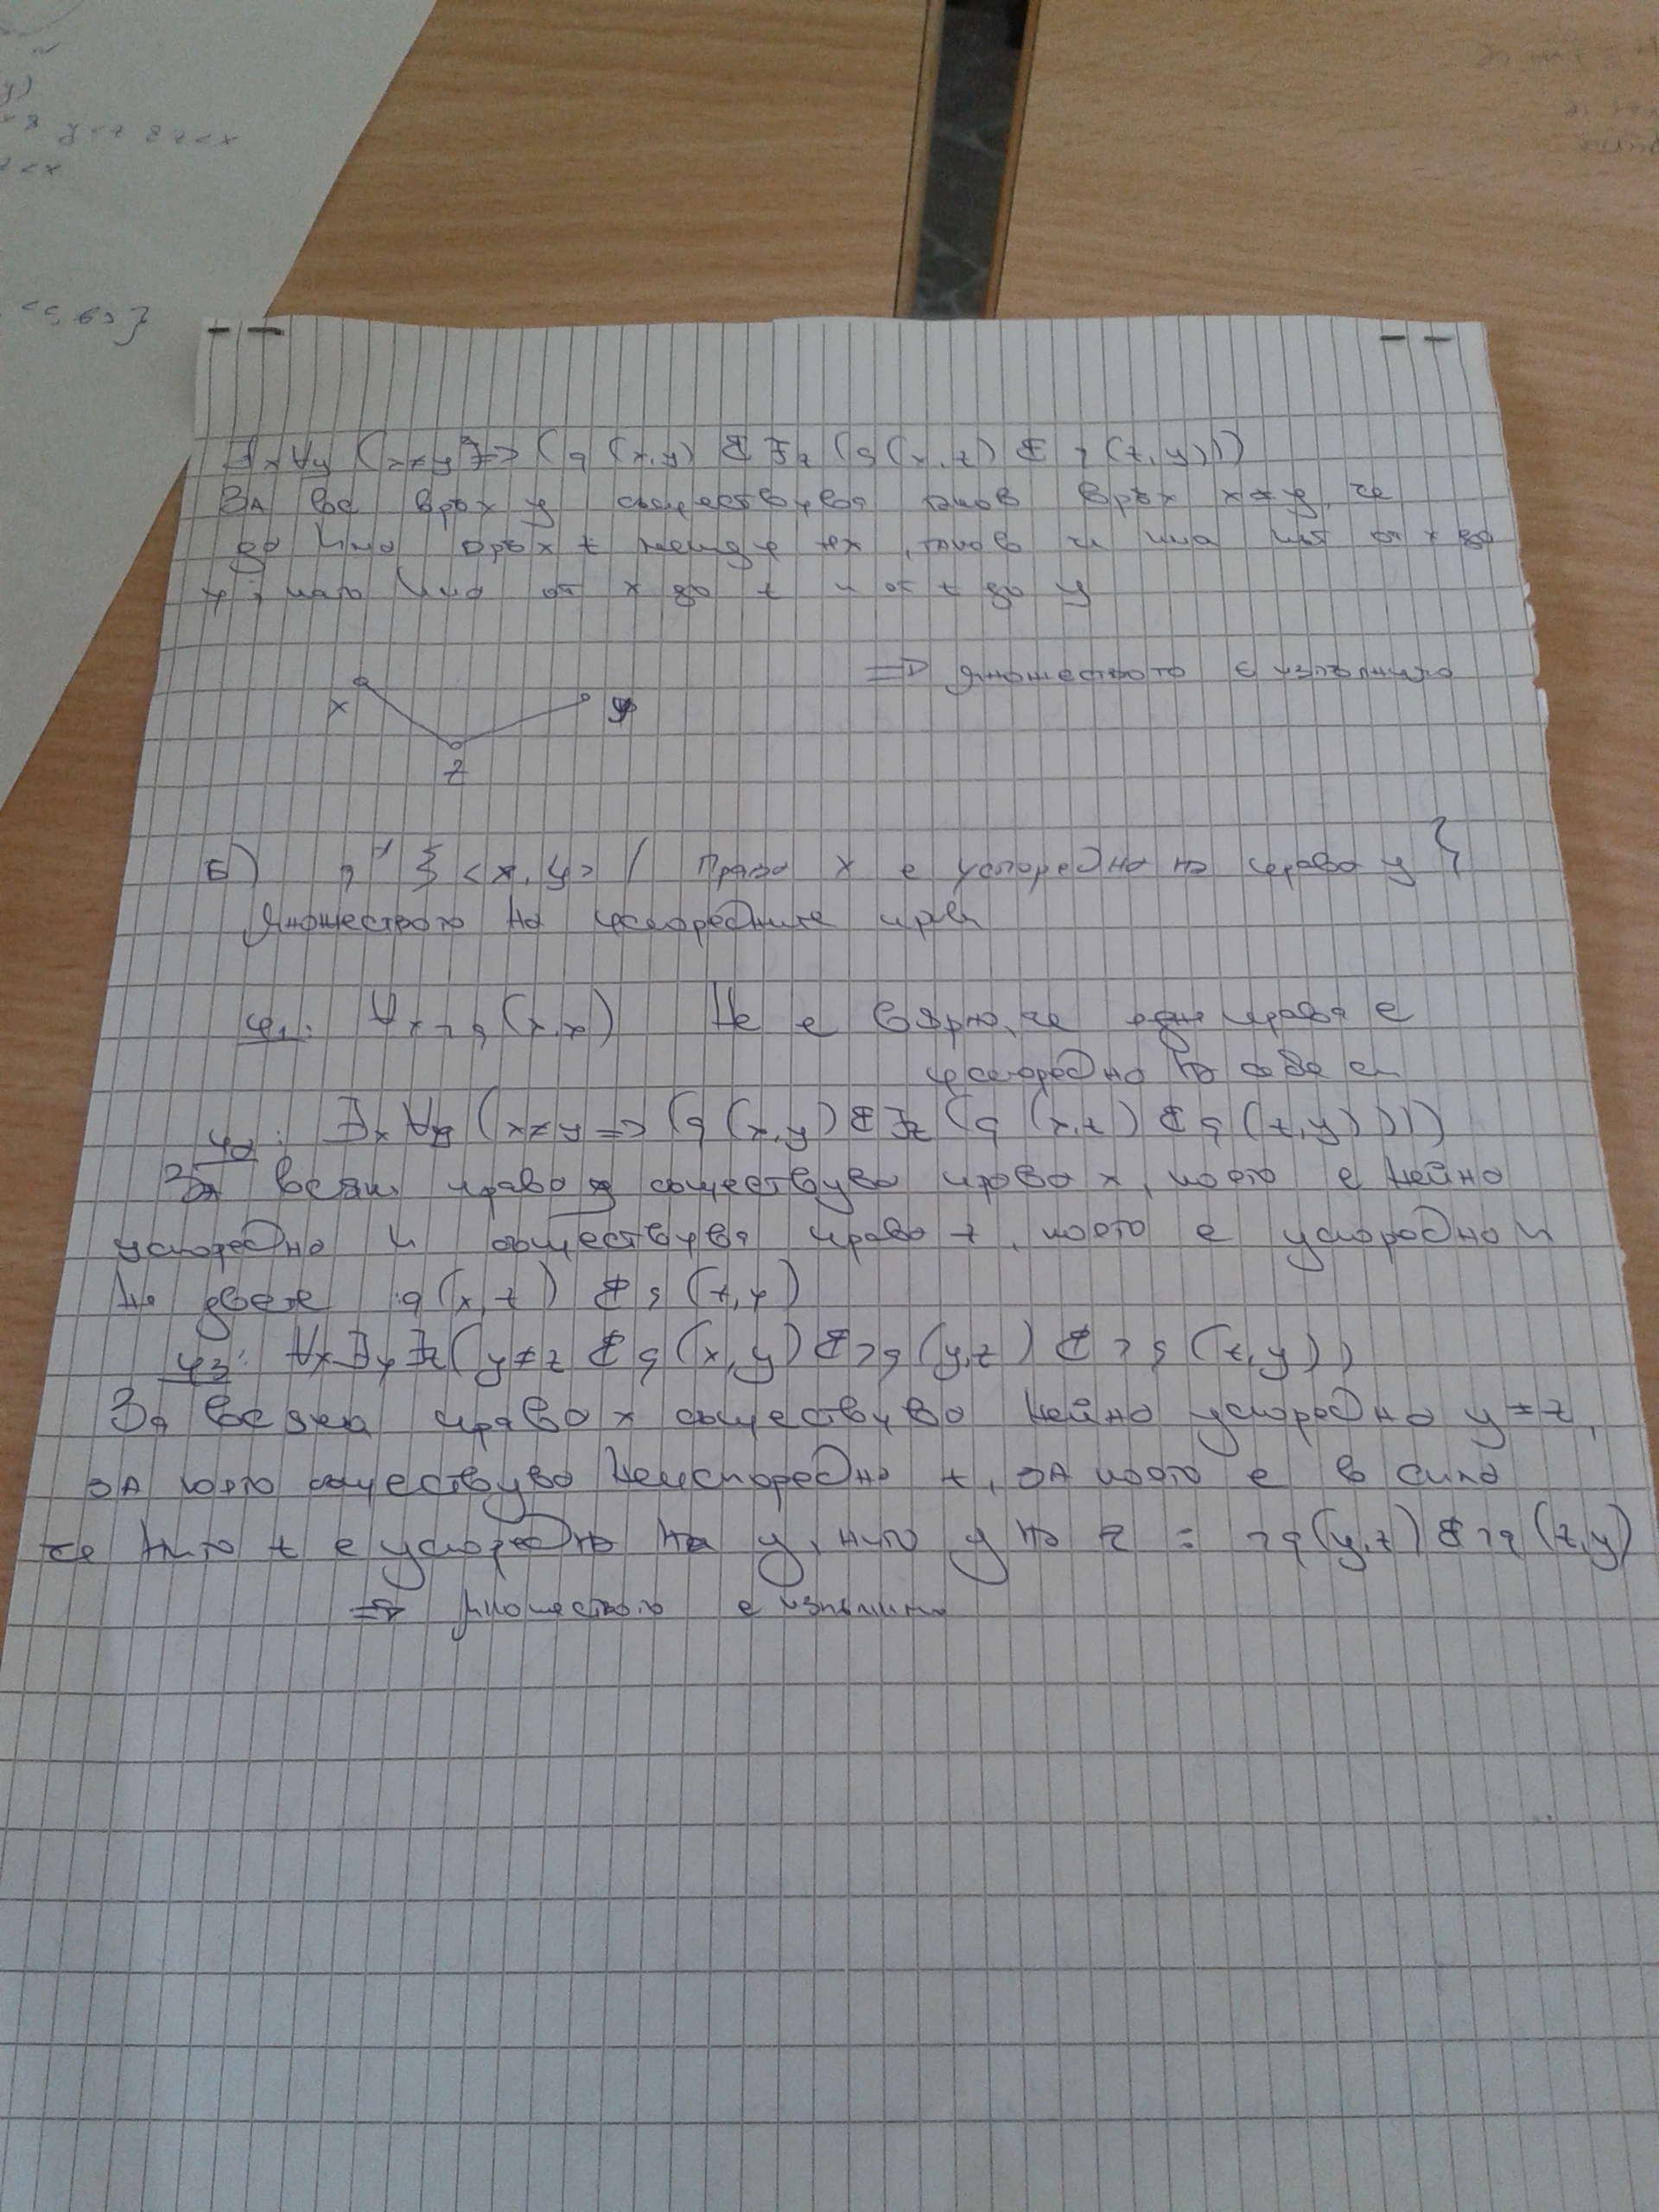 ∃x∀y (x≠y => (q (x,y) & ∃z (q(x,z) & q (z,y)))
За вс връх y съществува такъв връх x≠y, че
да има връх z между тях, такъв че има път от x до
y, има от x до z и от z до y
=> множеството е изпълнимо
x y
z
Б) q {<x,y> / Права x е успоредна на права y}
Множеството на успоредните прави
φ1: ∀x ¬q(x,x) Не е вярно, че една права е
успоредна на себе си
φ2: ∃x∀y (x≠y => (q (x,y) & ∃z (q (x,z) & q (z,y))))
За всяка права y съществува права x, която е нейна
успоредна и съществува права z, която е успоредна и
На двете q(x,z) & q (z,y)
φ3: ∀x∃y∃z (y≠z & q (x,y) & ¬q (y,z) & ¬q (z,y))
За всяка права x съществува нейна успоредна y≠z,
за която съществува неуспоредна z, за която е в сила
че нито z е успоредна на y, нито y на z : ¬q(y,z) & ¬q (z,y)
=> множеството е изпълнимо
y<z & z<x
z<x